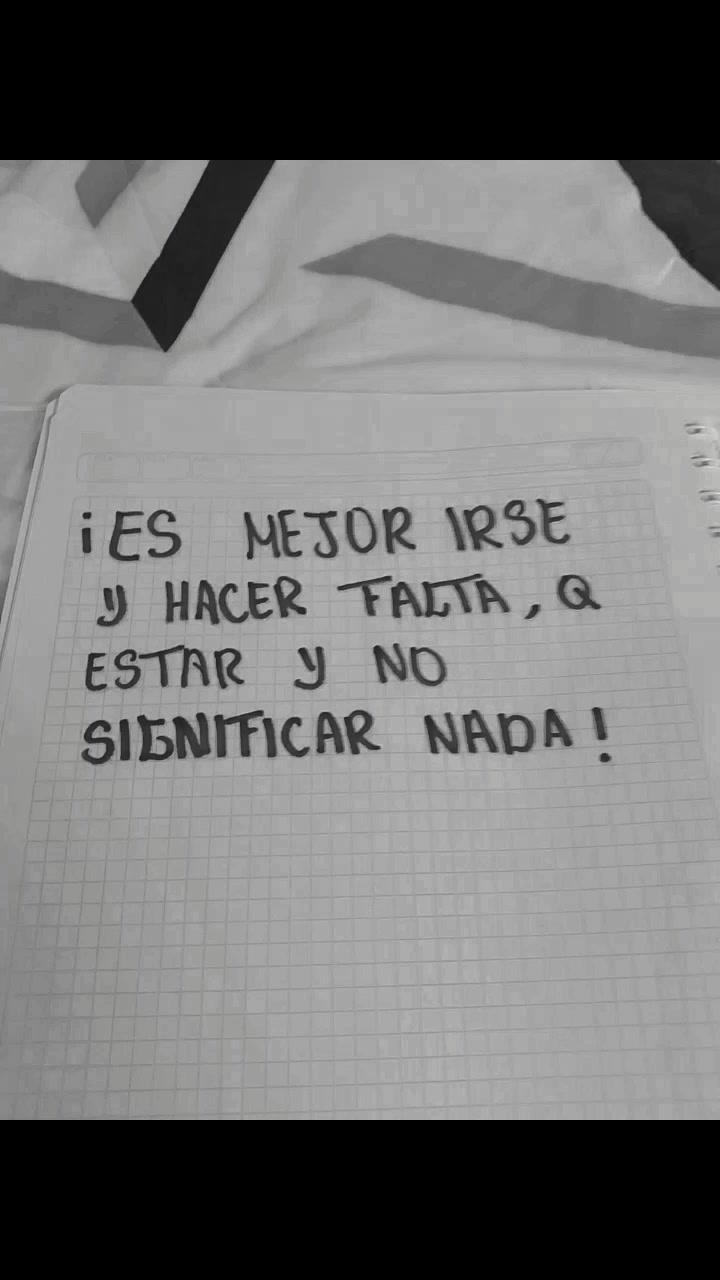 ¡ES MEJOR IRSE
Y HACER FALTA, Q
ESTAR Y NO
SIGNIFICAR NADA!